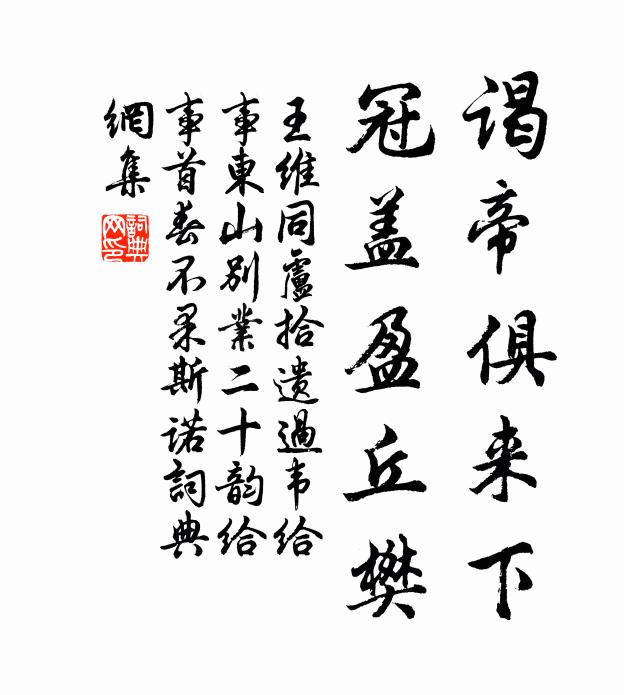 谒帝俱来下
冠盖盈丘樊
王维同盧拾遺過韦给
事東山别業二十韵给
事首春不果斯诺詞典
網集
詞典
网印